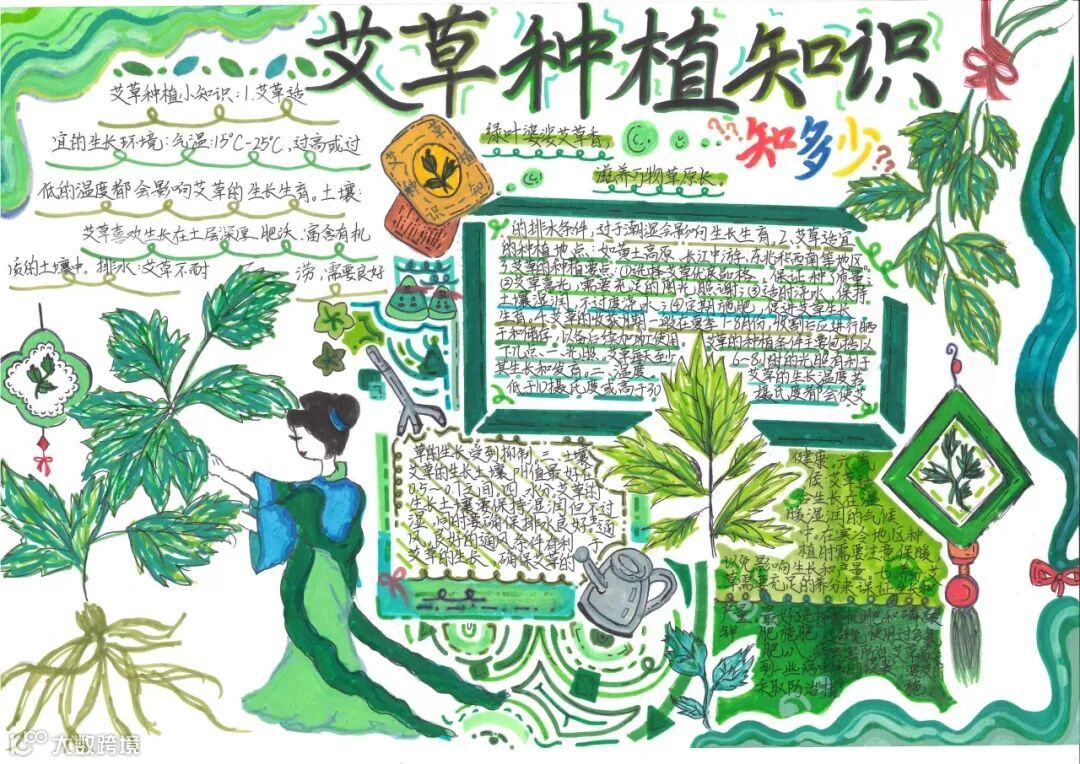 艾草种植知识
知多少??
艾草种植小知识:1.艾草适
宜的生长环境:气温:15℃-25℃,过高或过
低的温度都会影响艾草的生长生育。土壤:
艾草喜欢生长在土层深厚、肥沃、富含有机
质的土壤中。排水:艾草不耐 涝,需要良好
绿叶婆娑艾草香,
滋养万物草原长。
的排水条件,过于潮湿会影响生长生育。2、艾草适宜
的种植地点:如黄土高原、长江中游、东北和西南等地区
艾草的种植要点:①选择艾草优良品种,保证种子质量;
②艾草喜光,需要充足的阳光照谢;③适时浇水,保持
土壤湿润,不过度浇水;④定期施肥,促进艾草生长
生育。4.艾草的收获时期:一般在夏季 7-8月份,收割后应进行晒
干和储存,以备后续加工使用。 艾草的种植条件主要包括以
下几点:一、光照。艾草每天至少 6-8小时的光照有利于
其生长和发育。二、温度。 艾草的生长温度若
低于10摄氏度或高于30 摄氏度都会使艾
草的生长受到抑制。三、土壤
艾草的生长土壤 PH值最好在
之间。四、水分。艾草的
生长土壤要保持湿润但不过
湿,同时要确保排水良好。
风。良好的通风条件有利于
艾草的生长,确保艾草的
健康。六、气
候。艾草适
合生长在温
暖湿润的气候
中。在寒冷地区种
植时需要注意保暖
以免影响生长和产量。七、养分。艾
草需要充足的养分来保证生长和
产量,最好选择有机肥和
肥施肥,避免使用过多
肥。八、病虫害防治。艾草
到一些病虫害的 ,要
采取防治措 施。
大数跨境